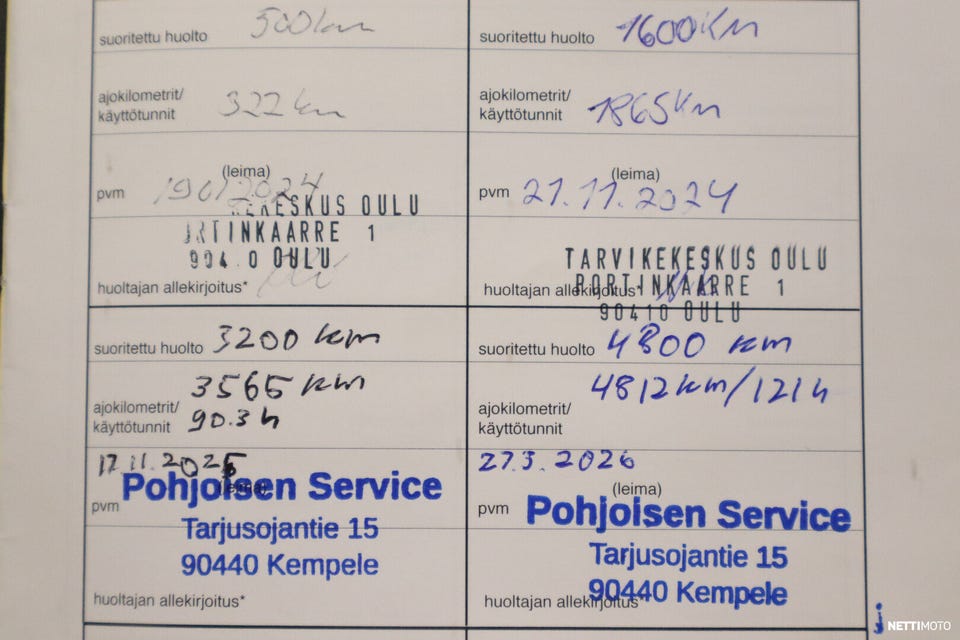 suoritettu huolto 500 km
ajokilometrit/
käyttötunnit 322 km
(leima)
pvm
KESKUS OULU
TINKAARRE 1
OULU
huoltajan allekirjoitus*
suoritettu huolto 1600 km
ajokilometrit/
käyttötunnit 1865 km
(leima)
pvm 21.11.2024
TARVIKEKESKUS OULU
PORTINKAARRE 1
90410 OULU
huoltajan allekirjoitus*
suoritettu huolto 3200 km
3565 km
ajokilometrit/
käyttötunnit 90.3 h
17.11.2025
(leima)
pvm
Pohjoisen Service
Tarjusojantie 15
90440 Kempele
huoltajan allekirjoitus*
suoritettu huolto 4800 km
4812 km/121 h
ajokilometrit/
käyttötunnit
27.3.2026
(leima)
pvm
Pohjoisen Service
Tarjusojantie 15
90440 Kempele
huoltajan allekirjoitus*
NETTIMOTO